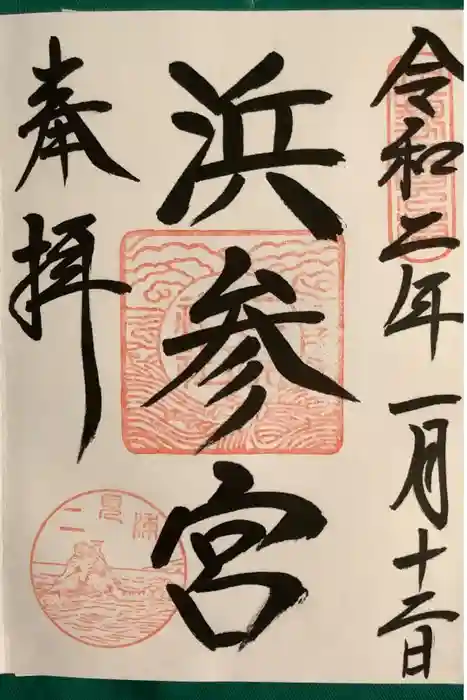 令和二年一月十三日
浜参宮
奉拝
二見浦